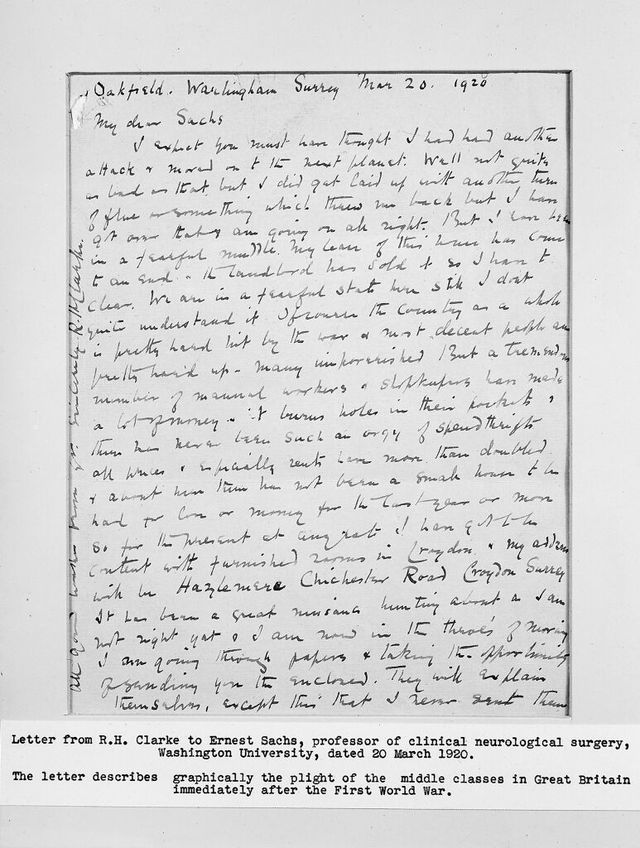 Oakfield. Warlingham Surrey Mar 20. 1920
My dear Sachs
I expect you must have thought I had had another
attack & moved on to the next planet. Well not quite
as bad as that but I did get laid up with another turn
of flue or something which threw me back but I have
got over that & am going on all right. But I have been
in a fearful muddle. My lease of this house has come
to an end & the landlord has sold it so I have to
clear. We are in a fearful state here still I dont
quite understand it. Of course the country as a whole
is pretty hard hit by the war & most decent people are
pretty hard up - many impoverished But a tremendous
number of manual workers & shopkeepers have made
a lot of money - it burns holes in their pockets &
there has never been such an orgy of spendthrifts
all prices & especially rents have more than doubled
& about here there has not been a small house to be
had for love or money for the last year or more
So for the present at any rate I have got to be
content with furnished rooms in Croydon, & my address
will be Hazlemere Chichester Road Croydon Surrey
It has been a great nuisance hunting about as I am
not right yet & I am now in the throes of moving
I am going through papers & taking the opportunity
of sending you the enclosed. They will explain
themselves, except this that I never sent them
All good wishes from yrs sincerely R. H. Clarke.
Letter from R.H. Clarke to Ernest Sachs, professor of clinical neurological surgery,
Washington University, dated 20 March 1920.
The letter describes graphically the plight of the middle classes in Great Britain
immediately after the First World War.